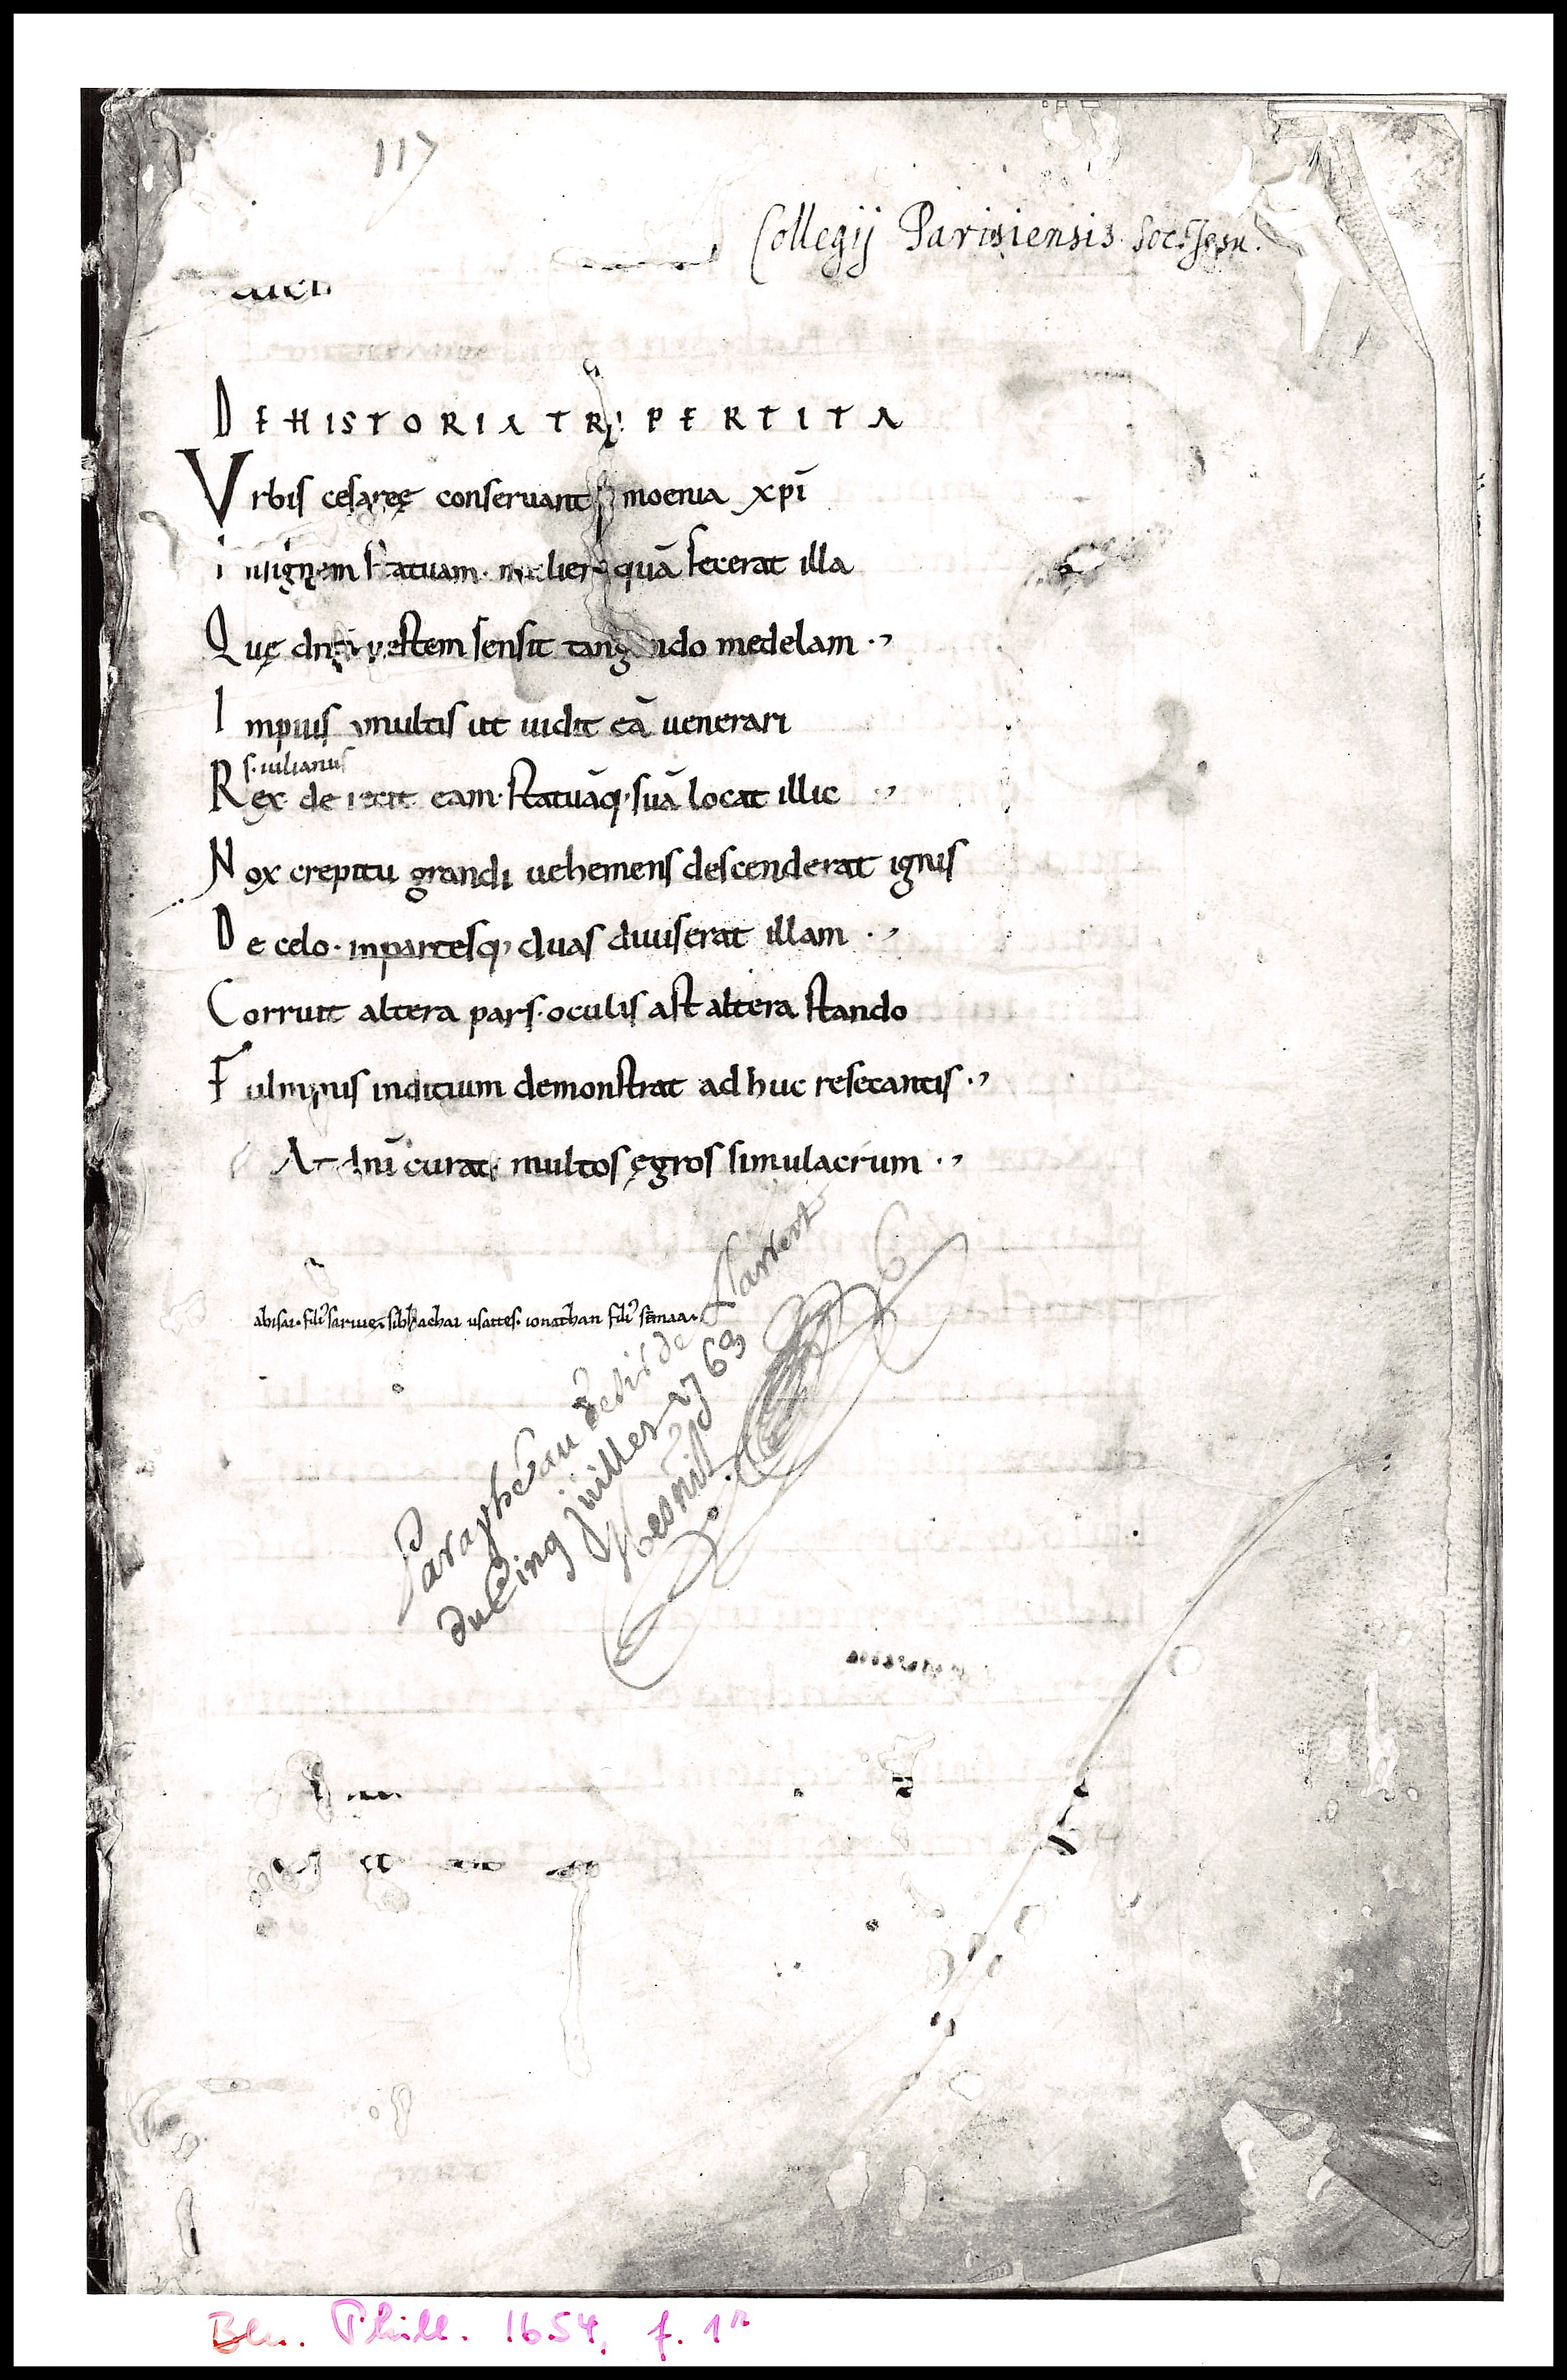 117
Collegij Parisiensis Soc. Jesu.
DE HISTORIA TRIPERTITA
Vrbis cesareę conseruant moenia xp̄i
Insignem statuam. mulier quā fecerat illa
Quę dn̄i uestem sensit tangendo medelam
Impius multis ut uidit eā uenerari
s. iulianus
Rex deiecit eam. statuāq. suā locat illic
Nox crepitu grandi uehemens descenderat ignis
De celo. inpartesq duas diuiserat illam
Corruit altera pars. oculis ast altera stando
Fulminis inditium demonstrat adhuc resecantis
At dn̄i curat multos ęgros simulacrum
abisai. fili᾽ saruię. sibbachai usattes. ionathan fili᾽ samaa.
Paraphé au desir de l'arrest
du cinq juillet 1763
Mesnil
Bln. Phill. 1654, f. 1r